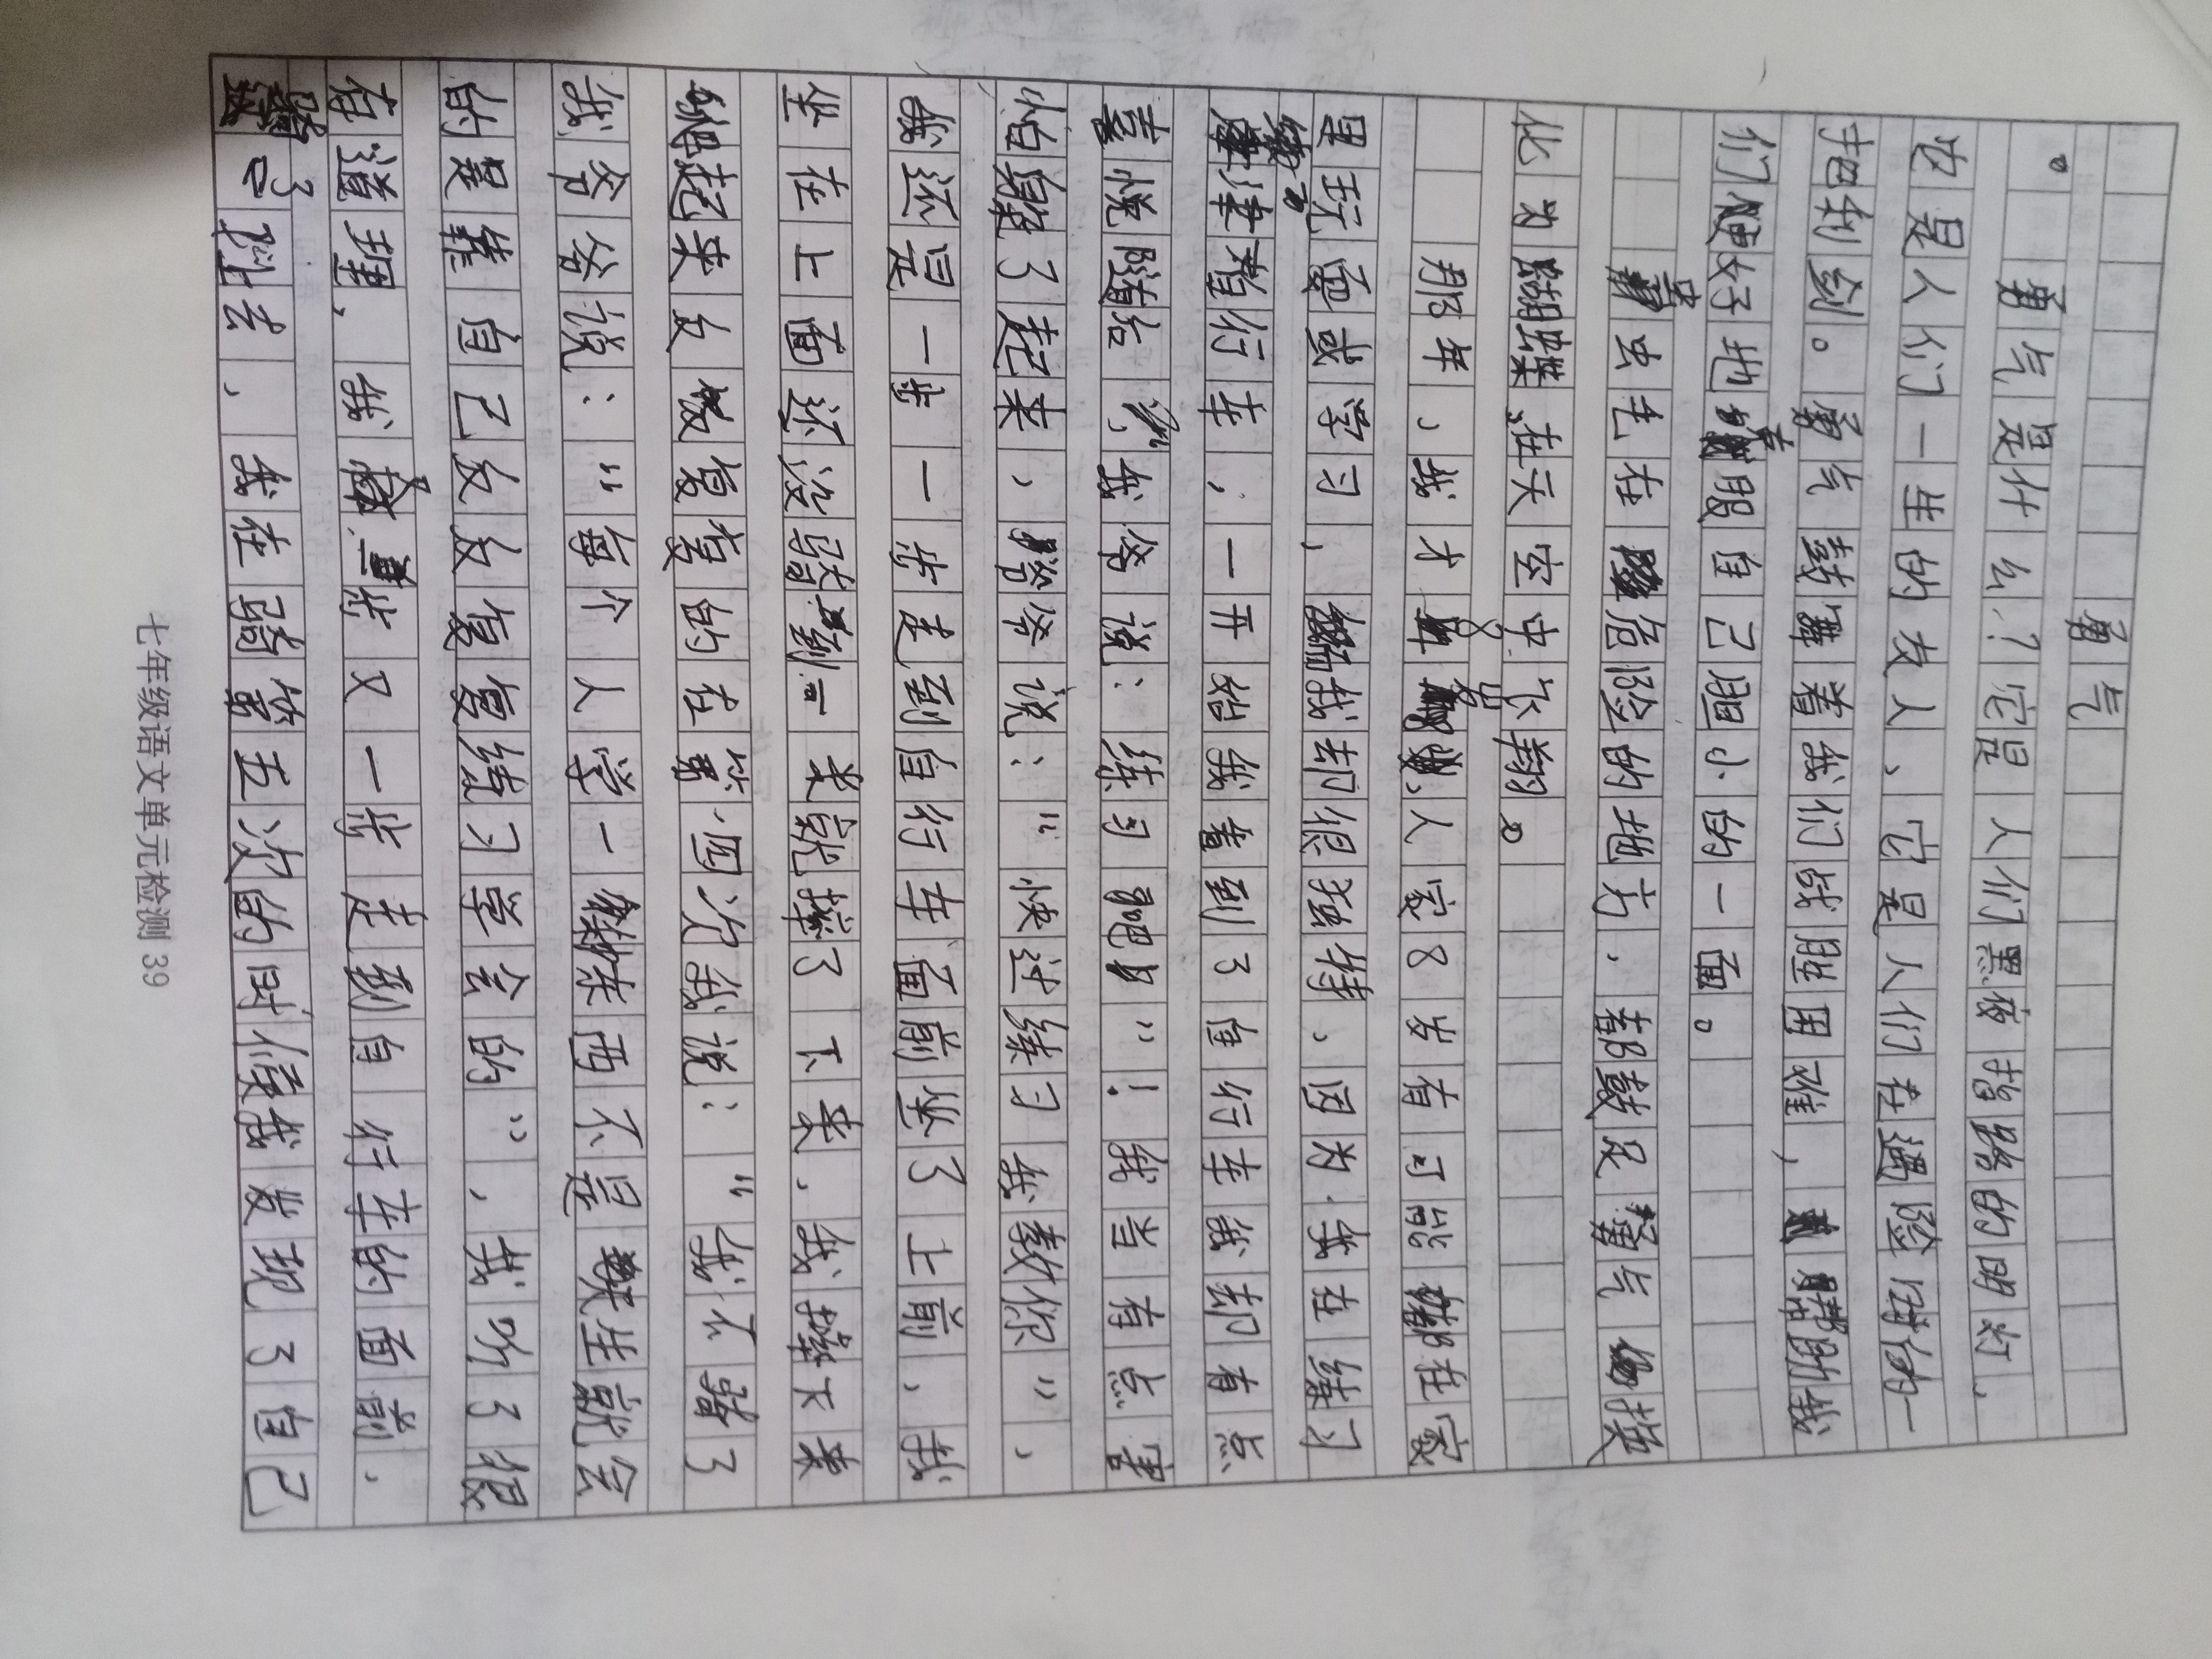 勇气
勇气是什么？它是人们黑夜指路的明灯、
。
也是人们一生的友人、它是人们在遇险时的一
把利剑。勇气鼓舞着我们战胜困难，帮助我
们更好地克服自己胆小的一面。
害虫毛在危险的地方、都鼓足勇气的找
化为蝴蝶在天空中飞翔。
那年、我才8岁、人家8岁有可能都在家
里玩耍或学习，我却很独特、因为我在练习
骑了
自行车，一开始我看到了自行车我却有点
喜悦随后我爸说：练习吧"！我当有点害
怕躲了起来，爸爸说："快过练习我教你"、
我还是一步一步走到自行车面前坐了上前、我
坐在上面还没骑到一米就摔了下来、我摔下来
爬起来反反复复的在第四次我说："我不骑了
我爸爸说："每个人学一样东西不是天生就会
的是靠自己反反复复练习学会的"、我听了很
有道理、我又一步又一步走到自行车的面前、
骑了上去、我在骑第五次的时候我发现了自己
七年级语文单元检测 39